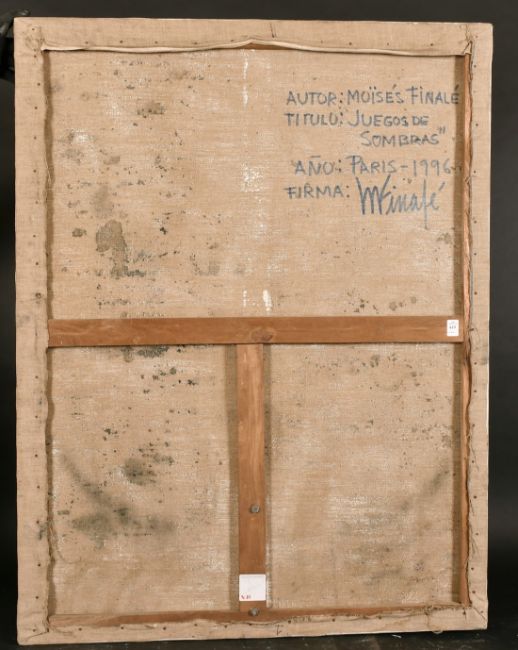 AUTOR: MOÏSÉS FINALÉ
TITULO: JUEGOS DE
SOMBRAS"
AÑO: PARIS-1996
FIRMA: MFinalé